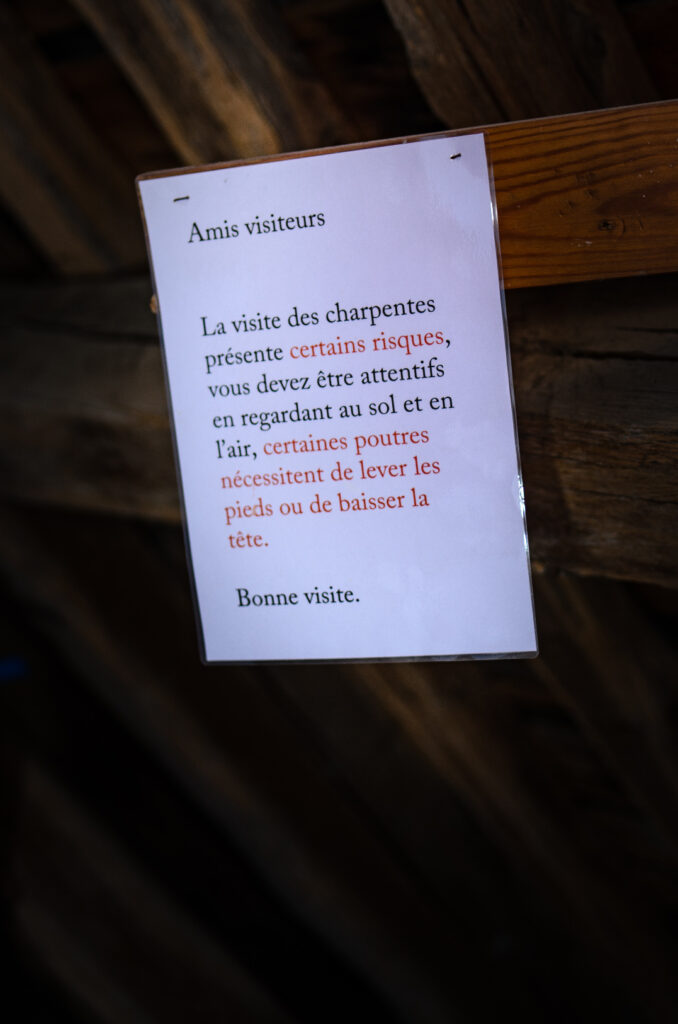 Amis visiteurs
La visite des charpentes
présente certains risques,
vous devez être attentifs
en regardant au sol et en
l'air, certaines poutres
nécessitent de lever les
pieds ou de baisser la
tête.
Bonne visite.